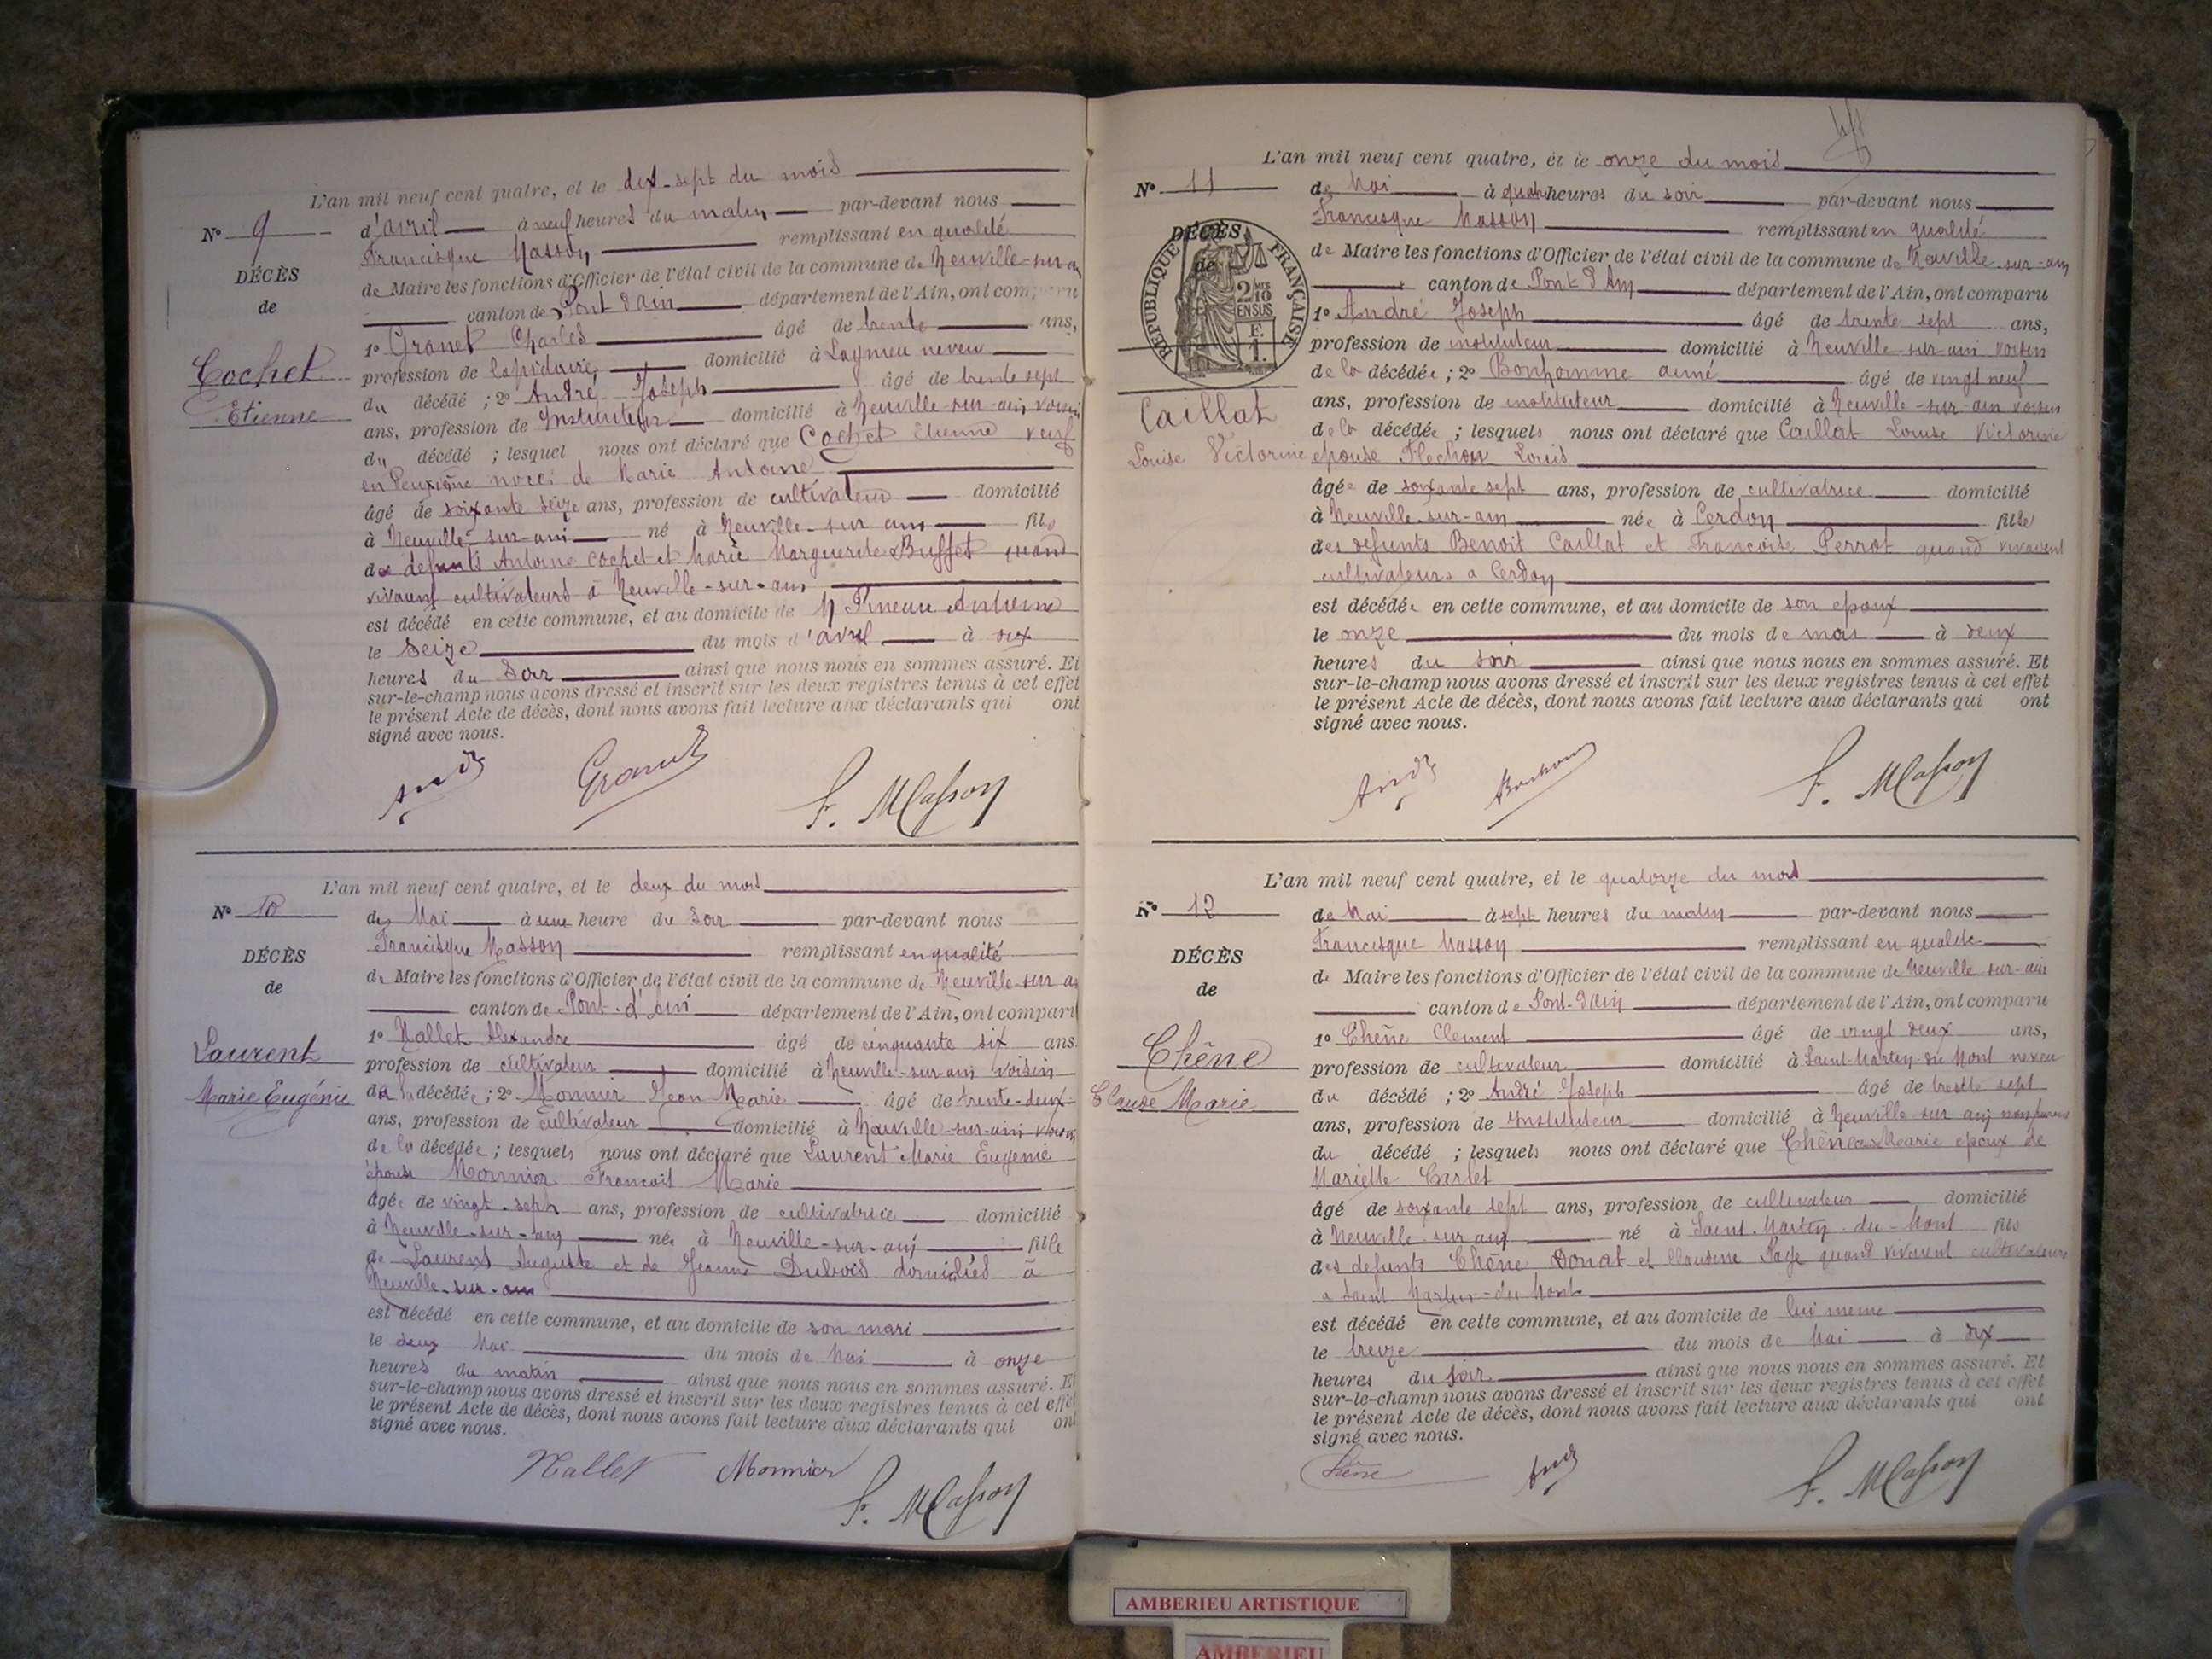 L'an mil neuf cent quatre, et le dix-sept du mois
N° 9
d'avril à neuf heures du matin par-devant nous
Francisque Masson remplissant en qualité
de Maire les fonctions d'Officier de l'état civil de la commune de Neuville-sur-ain
canton de Pont d'ain département de l'Ain, ont comparu
1° Granet Charles âgé de trente ans,
profession de lapidaire domicilié à neveu
du décédé ; 2° André Joseph âgé de trente sept
ans, profession de Instituteur domicilié à Neuville-sur-ain voisin
du décédé ; lesquel nous ont déclaré que Cochet Etienne veuf
en deuxième noces de Marie Antoine
âgé de soixante seize ans, profession de cultivateur domicilié
à Neuville-sur-ain né à Neuville-sur ain fils
des defunts Antoine Cochet et Marie Marguerite Buffet quand
vivaient cultivateurs à Neuville-sur-ain
est décédé en cette commune, et au domicile de Antoine
le Seize du mois d'avril à six
heures du Soir ainsi que nous nous en sommes assuré. Et
sur-le-champ nous avons dressé et inscrit sur les deux registres tenus à cet effet
le présent Acte de décès, dont nous avons fait lecture aux déclarants qui ont
signé avec nous.
DÉCÈS
de
Cochet
Etienne
André Granet F. Masson
L'an mil neuf cent quatre, et le deux du mois
N° 10
de Mai à une heure du Soir par-devant nous
Francisque Masson remplissant en qualité
de Maire les fonctions d'Officier de l'état civil de la commune de Neuville-sur ain
canton de Pont-d'ain département de l'Ain, ont comparu
1° Nallet Alexandre âgé de cinquante six ans.
profession de cultivateur domicilié à Neuville-sur-ain voisin
de la décédée ; 2° Monnier Jean Marie âgé de trente-deux
ans, profession de cultivateur domicilié à Neuville-sur-ain voisin
de la décédée ; lesquels nous ont déclaré que Laurent Marie Eugenie
épouse Monnier Francois Marie
âgée de vingt-sept ans, profession de cultivatrice domicilié
à Neuville-sur-ain née à Neuville-sur-ain fille
de Laurent Auguste et de Jeanne Dubois domiciliés à
Neuville-sur-ain
est décédé en cette commune, et au domicile de son mari
le deux Mai du mois de Mai à onze
heures du matin ainsi que nous nous en sommes assuré. Et
sur-le-champ nous avons dressé et inscrit sur les deux registres tenus à cet effet
le présent Acte de décès, dont nous avons fait lecture aux déclarants qui ont
signé avec nous.
DÉCÈS
de
Laurent
Marie Eugénie
Nallet Monnier F. Masson
L'an mil neuf cent quatre, et le onze du mois
N° 11
de Mai à quatre heures du soir par-devant nous
Francisque Masson remplissant en qualité
de Maire les fonctions d'Officier de l'état civil de la commune de Neuville-sur-ain
canton de Pont d'Ain département de l'Ain, ont comparu
1° André Joseph âgé de trente sept ans,
profession de instituteur domicilié à Neuville-sur-ain voisin
de la décédée ; 2° Bonhomme aimé âgé de vingt neuf
ans, profession de instituteur domicilié à Neuville-sur-ain voisin
de la décédée ; lesquels nous ont déclaré que Caillat Louise Victorine
epouse Flechon Louis
âgée de soixante sept ans, profession de cultivatrice domicilié
à Neuville-sur-ain née à Cerdon fille
des defunts Benoit Caillat et Francoise Perrot quand vivaient
cultivateurs a Cerdon
est décédée en cette commune, et au domicile de son epoux
le onze du mois de mai à deux
heures du soir ainsi que nous nous en sommes assuré. Et
sur-le-champ nous avons dressé et inscrit sur les deux registres tenus à cet effet
le présent Acte de décès, dont nous avons fait lecture aux déclarants qui ont
signé avec nous.
DÉCÈS
de
RÉPUBLIQUE FRANÇAISE
2/10
EN SUS
F.
1.
Caillat
Louise Victorine
André Bonhomme F. Masson
L'an mil neuf cent quatre, et le quatorze du mois
N° 12
de Mai à sept heures du matin par-devant nous
Francisque Masson remplissant en qualité
de Maire les fonctions d'Officier de l'état civil de la commune de Neuville sur-ain
canton de Pont-d'ain département de l'Ain, ont comparu
1° Chêne Clement âgé de vingt deux ans,
profession de cultivateur domicilié à Saint-Martin-du Mont neveu
du décédé ; 2° André Joseph âgé de trente sept
ans, profession de Instituteur domicilié à Neuville sur ain non parent
du décédé ; lesquels nous ont déclaré que Chêne Marie epoux de
Mariette Carlet
âgé de soixante sept ans, profession de cultivateur domicilié
à Neuville sur ain né à Saint-Martin-du-Mont fils
des defunts Chêne Donat et Claudine Page quand vivaient cultivateurs
a Saint Martin-du Mont
est décédé en cette commune, et au domicile de lui meme
le treize du mois de Mai à dix
heures du soir ainsi que nous nous en sommes assuré. Et
sur-le-champ nous avons dressé et inscrit sur les deux registres tenus à cet effet
le présent Acte de décès, dont nous avons fait lecture aux déclarants qui ont
signé avec nous.
DÉCÈS
de
Chêne
Marie
Chêne André F. Masson
AMBERIEU ARTISTIQUE
AMBERIEU